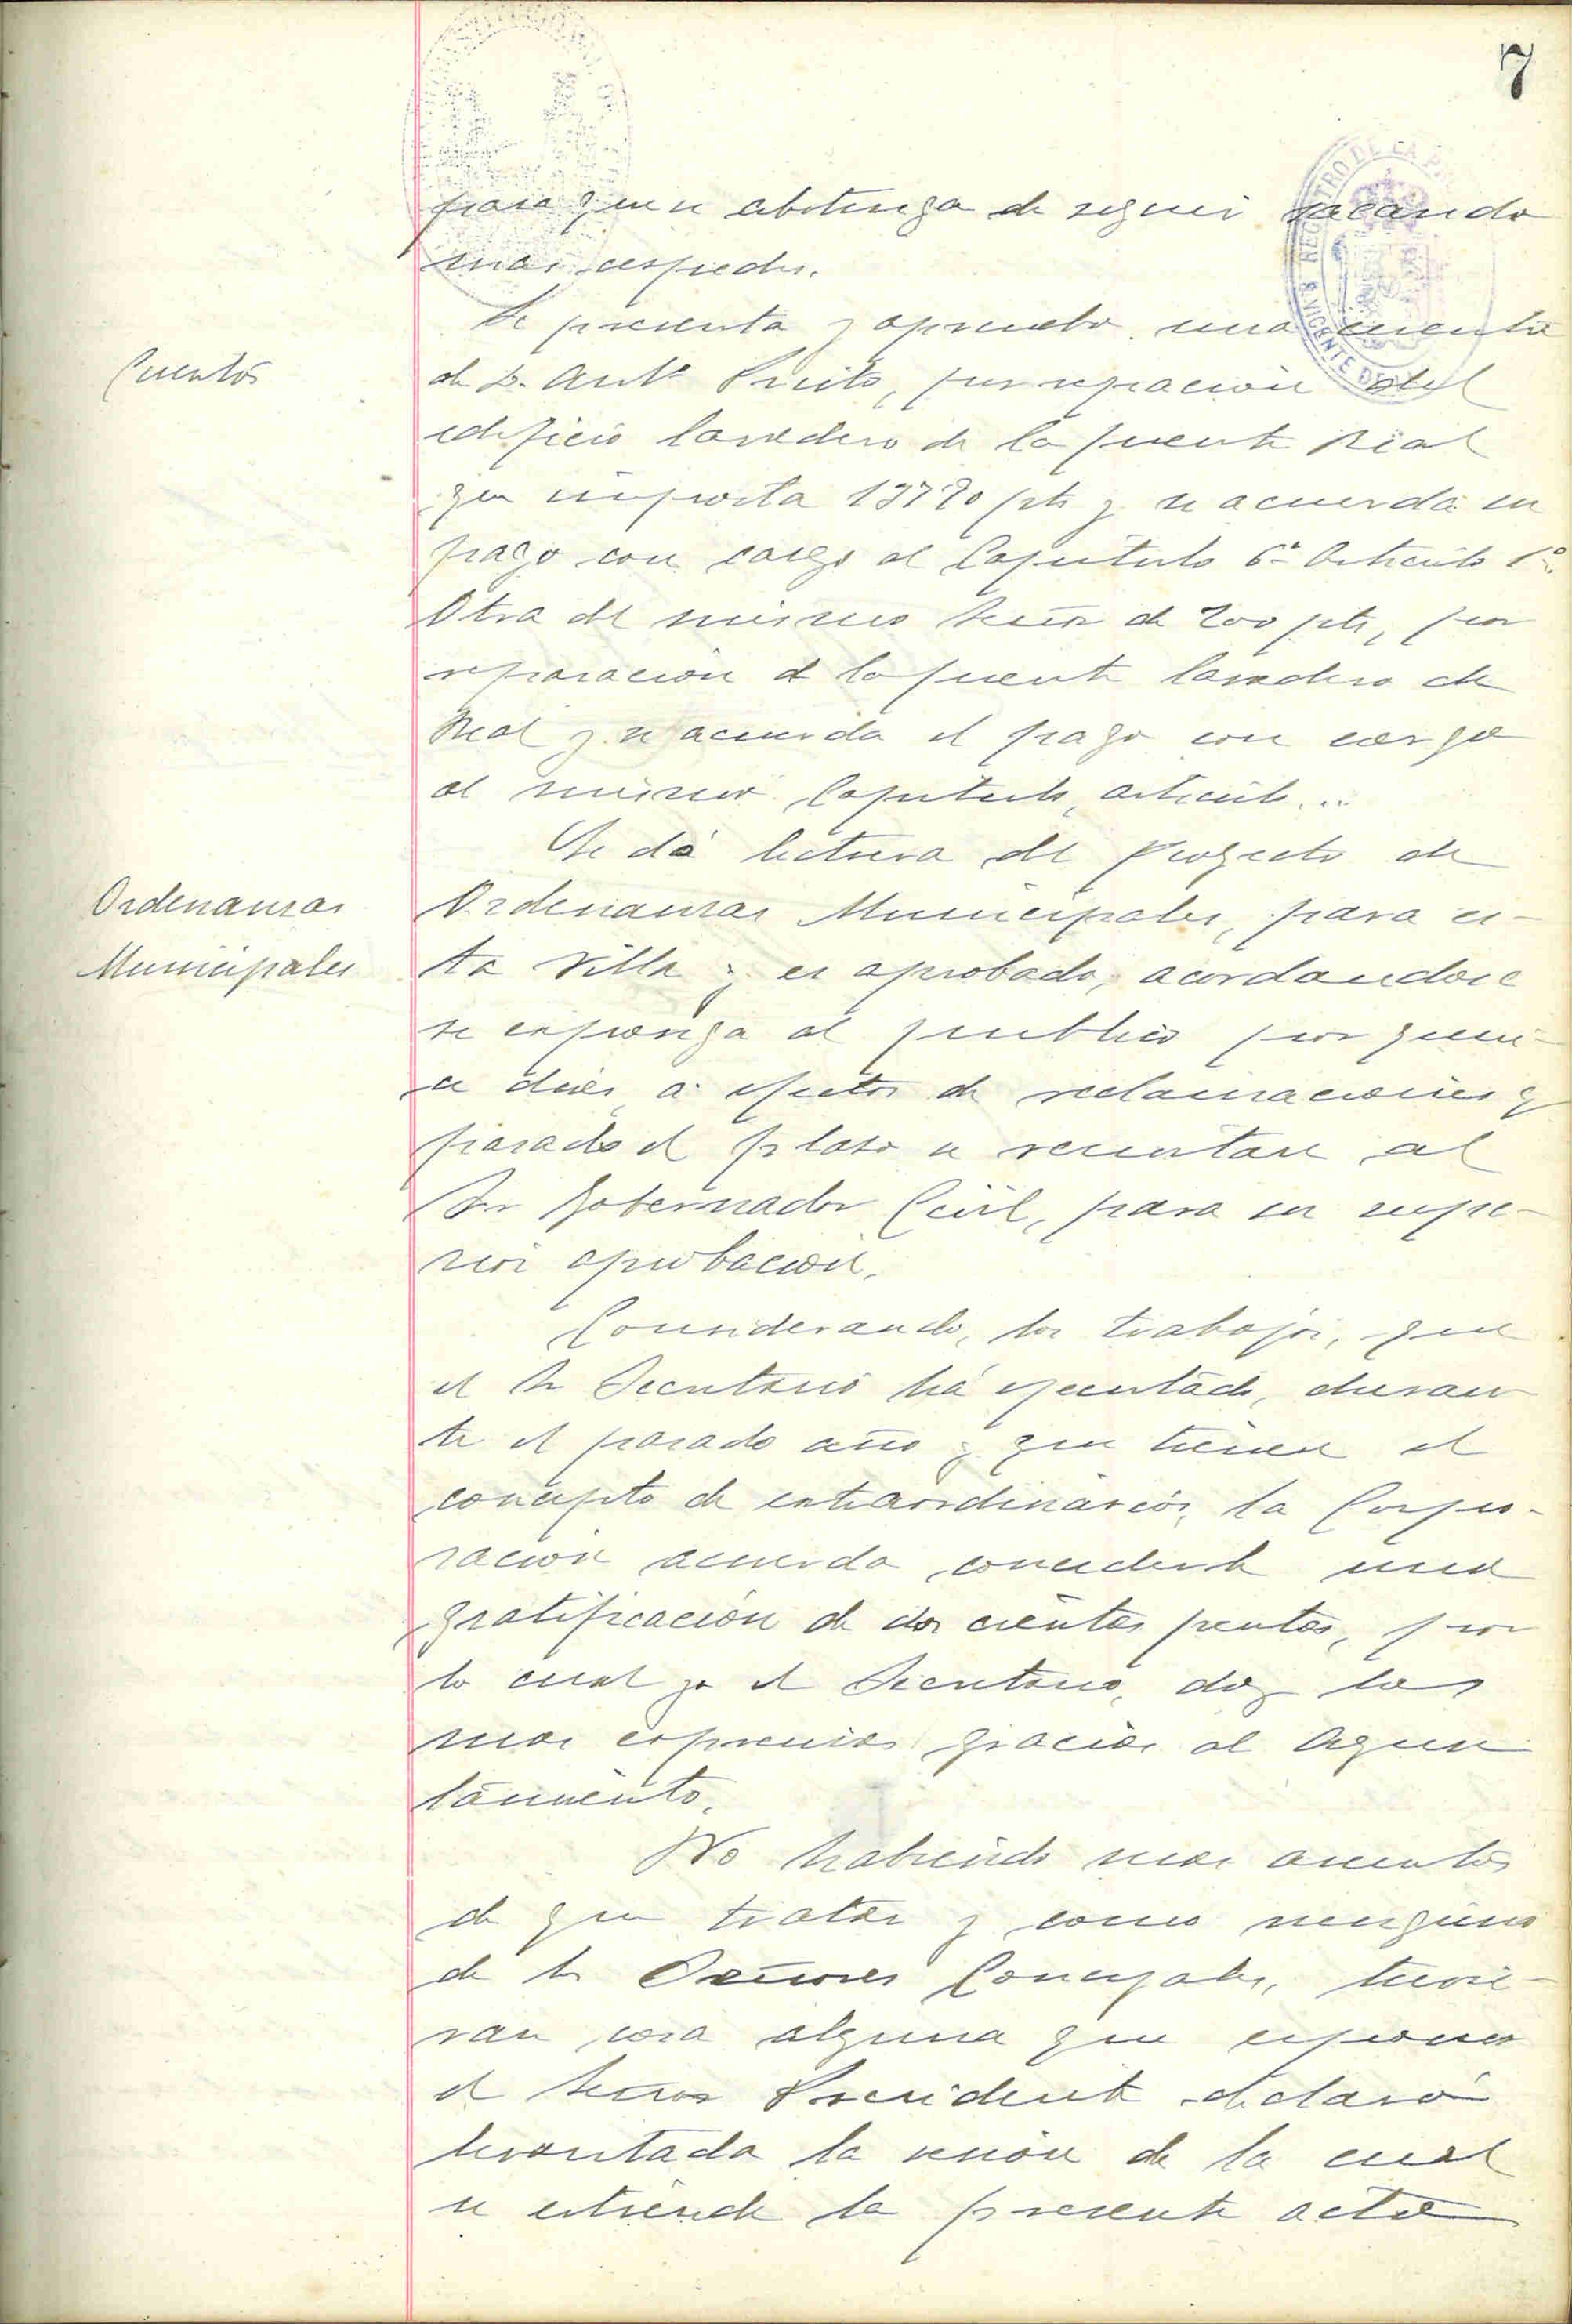 7
para que se abstenga de seguir sacando
mas cespedes.
Cuentas
Se presenta y aprueba una cuenta
de D. Antº Prieto, por reparacion del
edificio lavadero de la fuente Real
que importa pts y se acuerda su
pago con cargo al Capitulo 6º Articulo 1º.
Otra del mismo Señor de 200 pts, por
reparacion de la fuente lavadero de
Real y se acuerda el pago con cargo
al mismo Capitulo, articulo...
Ordenanzas
Municipales
Se dá lectura del Proyecto de
Ordenanzas Municipales, para es-
ta Villa y es aprobado, acordandose
se exponga al publico por quin-
ce dias a efectos de reclamaciones y
pasado el plazo se remitan al
Sr Gobernador Civil, para su supe-
rior aprobacion.
Considerando, los trabajos, que
el Sr Secretario há ejecutado, duran
te el pasado año y que tienen el
concepto de extraordinarios, la Corpo-
racion acuerda concederle una
gratificación de dos cientas pesetas, por
lo cual yo el Secretario, doy las
mas expresivas gracias al Ayun
tamiento.
No habiendo mas asuntos
de que tratar y como ninguno
de los Señores Concejales, tuvie-
ran cosa alguna que exponer
el Señor Presidente declaró
levantada la sesión de la cual
se extiende la presente acta